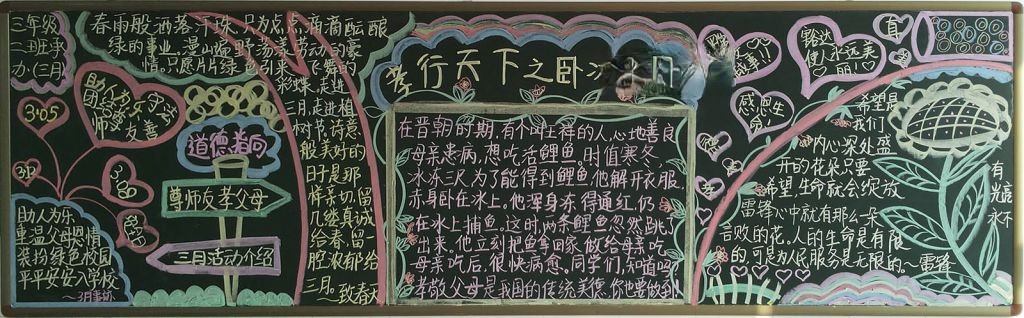 三年级
二班承
办.(三月)
春雨般洒落汗珠,只为点点滴滴酝酿
绿的事业。漫山遍野荡漾劳动的豪
情。只愿片片绿色引来飞舞的
彩蝶.走进
三月,走进植
树节.诗意
般美好的
时是那
样亲切.留
几缕真诚
给春.留一
腔浓郁给
三月。~致春天
3.05
助人为乐
团结
师爱
友善
3.12
3.08
道德指向
尊师友孝父母
三月活动介绍
助人为乐
重温父母恩情
装扮绿色校园
平平安安入学校
孝行天下之卧冰
在晋朝时期,有个叫王祥的人,心地善良
母亲患病,想吃活鲤鱼,时值寒冬,
冰冻三尺,为了能得到鲤鱼,他解开衣服,
赤身卧在冰上,他浑身冻得通红,仍
在冰上捕鱼。这时,两条鲤鱼忽然跳
出来,他立刻把鱼拿回家,做给母亲吃.
母亲吃后,很快病愈。同学们,知道吗?
孝敬父母是我国的传统美德.你也要做到!
豁达
使人永远美
丽!
感恩生
命
希望是
我们
内心深处盛
开的花朵只要
希望,生命就会绽放
雷锋心中就有那么一朵
不败的花.人的生命是有限
的,可是为人民服务是无限的。~雷锋
有
光
永不